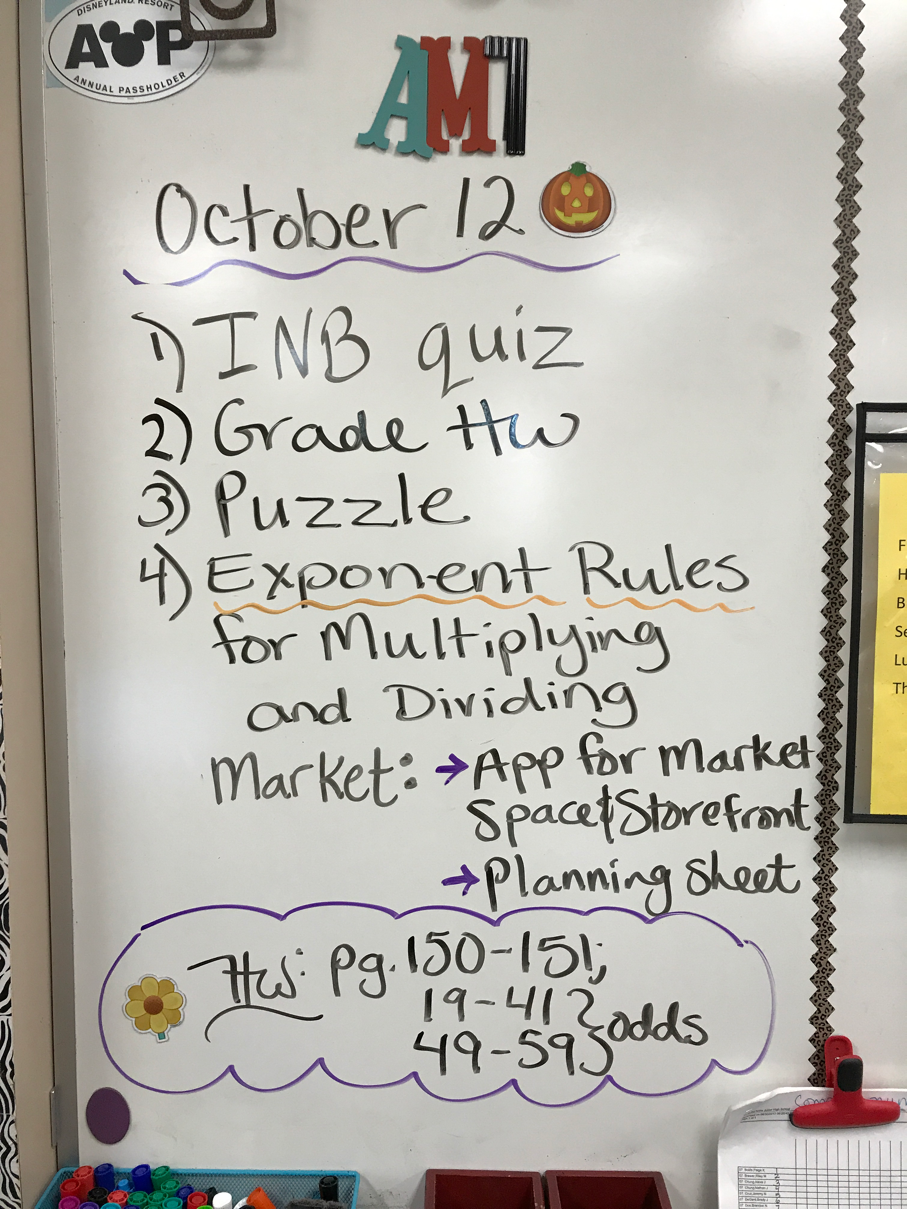 DISNEYLAND RESORT
A P
ANNUAL PASSHOLDER
AM7
October 12
1) INB quiz
2) Grade HW
3) Puzzle
4) Exponent Rules
for Multiplying
and Dividing
Market: → App for Market
Space & Storefront
→ Planning Sheet
HW: pg. 150-151;
19-41 } odds
49-59
F
H
B
Se
Lu
Th